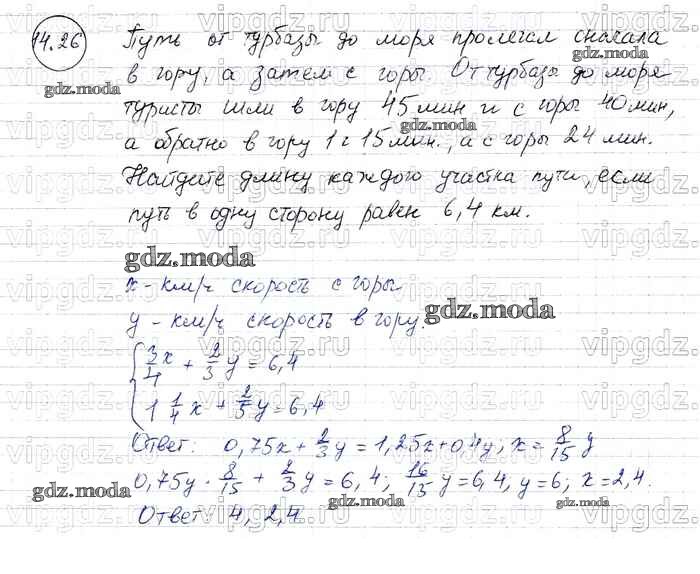 14.26 Путь от турбазы до моря пролегал сначала
в гору, а затем с горы. От турбазы до моря
туристы шли в гору 45 мин и с горы 40 мин,
а обратно в гору 1 ч 15 мин., а с горы 24 мин.
Найдите длину каждого участка пути, если
путь в одну сторону равен 6,4 км.
x - км/ч скорость с горы
y - км/ч скорость в гору.
3/4 x + 2/3 y = 6,4
1 1/4 x + 2/5 y = 6,4
Ответ: 0,75x + 2/3 y = 1,25x + 0,4y; x = 8/15 y
0,75y · 8/15 + 2/3 y = 6,4; 16/15 y = 6,4, y = 6; x = 2,4.
Ответ: 4, 2,4
gdz.moda
gdz.moda
gdz.moda
gdz.moda
gdz.moda
gdz.moda
gdz.moda
gdz.moda
vipgdz.ru